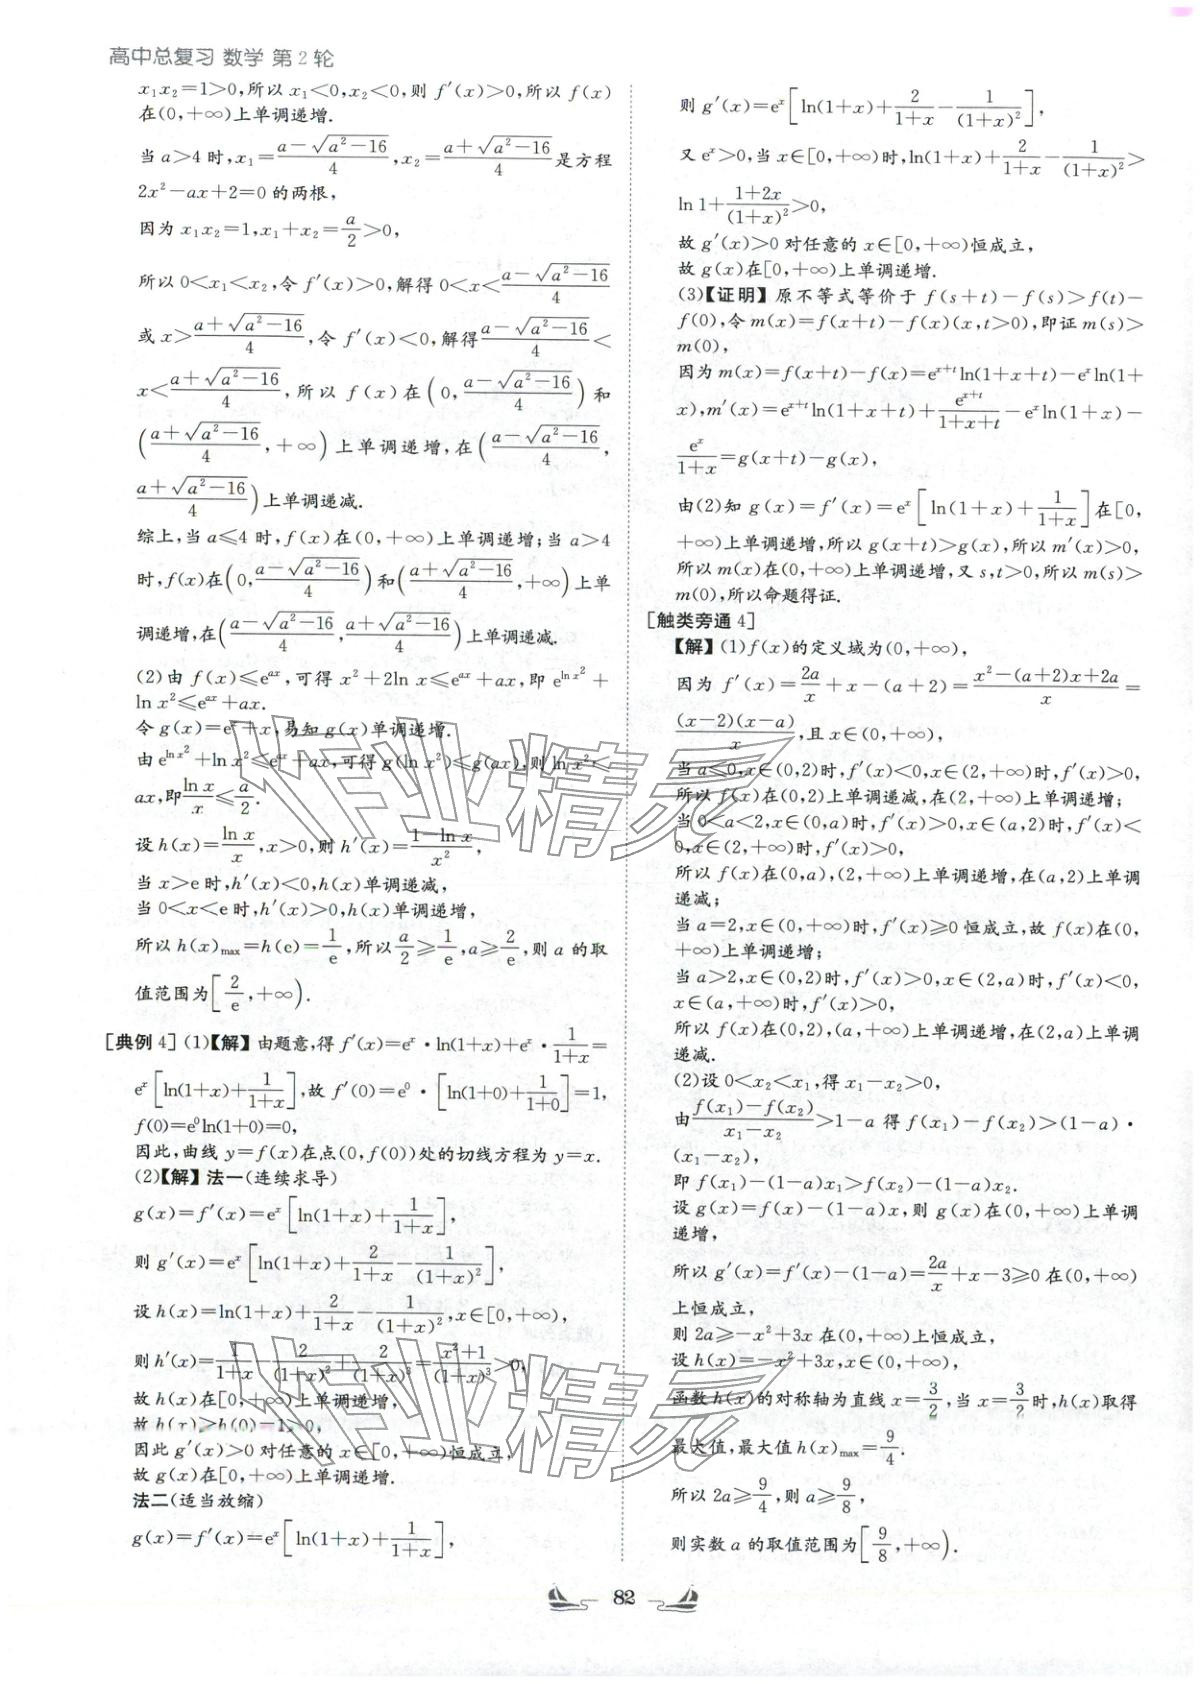 高中总复习 数学 第2轮
x₁x₂=1>0,所以 x₁<0,x₂<0,则 f′(x)>0,所以 f(x)
在(0,+∞)上单调递增.
当 a>4 时,x₁=(a-√(a²-16))/4,x₂=(a+√(a²-16))/4 是方程
2x²-ax+2=0 的两根,
因为 x₁x₂=1,x₁+x₂=a/2>0,
所以 0<x₁<x₂,令 f′(x)>0,解得 0<x<(a-√(a²-16))/4
或 x>(a+√(a²-16))/4,令 f′(x)<0,解得(a-√(a²-16))/4<
x<(a+√(a²-16))/4,所以 f(x)在(0,(a-√(a²-16))/4)和
((a+√(a²-16))/4,+∞)上单调递增,在((a-√(a²-16))/4,
(a+√(a²-16))/4)上单调递减.
综上,当 a≤4 时,f(x)在(0,+∞)上单调递增;当 a>4
时,f(x)在(0,(a-√(a²-16))/4)和((a+√(a²-16))/4,+∞)上单
调递增,在((a-√(a²-16))/4,(a+√(a²-16))/4)上单调递减.
(2)由 f(x)≤e^{ax},可得 x²+2ln x≤e^{ax}+ax,即 e^{ln x²}+
ln x²≤e^{ax}+ax.
令 g(x)=eˣ+x,易知 g(x)单调递增.
由 e^{ln x²}+ln x²≤e^{ax}+ax,可得 g(ln x²)≤g(ax),则 ln x²≤
ax,即 (ln x)/x≤a/2.
设 h(x)=(ln x)/x,x>0,则 h′(x)=(1-ln x)/x²,
当 x>e 时,h′(x)<0,h(x)单调递减,
当 0<x<e 时,h′(x)>0,h(x)单调递增,
所以 h(x)max=h(e)=1/e,所以 a/2≥1/e,a≥2/e,则 a 的取
值范围为[2/e,+∞).
[典例 4] (1)【解】由题意,得 f′(x)=eˣ·ln(1+x)+eˣ·1/(1+x)=
eˣ[ln(1+x)+1/(1+x)],故 f′(0)=e⁰·[ln(1+0)+1/(1+0)]=1,
f(0)=e⁰ln(1+0)=0,
因此,曲线 y=f(x)在点(0,f(0))处的切线方程为 y=x.
(2)【解】法一(连续求导)
g(x)=f′(x)=eˣ[ln(1+x)+1/(1+x)],
则 g′(x)=eˣ[ln(1+x)+2/(1+x)-1/(1+x)²],
设 h(x)=ln(1+x)+2/(1+x)-1/(1+x)²,x∈[0,+∞),
则 h′(x)=1/(1+x)-2/(1+x)²+2/(1+x)³=(x²+1)/(1+x)³>0,
故 h(x)在[0,+∞)上单调递增,
故 h(x)≥h(0)=1>0,
因此 g′(x)>0 对任意的 x∈[0,+∞)恒成立,
故 g(x)在[0,+∞)上单调递增.
法二(适当放缩)
g(x)=f′(x)=eˣ[ln(1+x)+1/(1+x)],
则 g′(x)=eˣ[ln(1+x)+2/(1+x)-1/(1+x)²],
又 eˣ>0,当 x∈[0,+∞)时,ln(1+x)+2/(1+x)-1/(1+x)²>
ln 1+(1+2x)/(1+x)²>0,
故 g′(x)>0 对任意的 x∈[0,+∞)恒成立,
故 g(x)在[0,+∞)上单调递增.
(3)【证明】原不等式等价于 f(s+t)-f(s)>f(t)-
f(0),令 m(x)=f(x+t)-f(x)(x,t>0),即证 m(s)>
m(0),
因为 m(x)=f(x+t)-f(x)=e^{x+t}ln(1+x+t)-eˣln(1+
x),m′(x)=e^{x+t}ln(1+x+t)+e^{x+t}/(1+x+t)-eˣln(1+x)-
eˣ/(1+x)=g(x+t)-g(x),
由(2)知 g(x)=f′(x)=eˣ[ln(1+x)+1/(1+x)]在[0,
+∞)上单调递增,所以 g(x+t)>g(x),所以 m′(x)>0,
所以 m(x)在(0,+∞)上单调递增,又 s,t>0,所以 m(s)>
m(0),所以命题得证.
[触类旁通 4]
【解】(1)f(x)的定义域为(0,+∞),
因为 f′(x)=2a/x+x-(a+2)=(x²-(a+2)x+2a)/x=
(x-2)(x-a)/x,且 x∈(0,+∞),
当 a≤0,x∈(0,2)时,f′(x)<0,x∈(2,+∞)时,f′(x)>0,
所以 f(x)在(0,2)上单调递减,在(2,+∞)上单调递增;
当 0<a<2,x∈(0,a)时,f′(x)>0,x∈(a,2)时,f′(x)<
0,x∈(2,+∞)时,f′(x)>0,
所以 f(x)在(0,a),(2,+∞)上单调递增,在(a,2)上单调
递减;
当 a=2,x∈(0,+∞)时,f′(x)≥0 恒成立,故 f(x)在(0,
+∞)上单调递增;
当 a>2,x∈(0,2)时,f′(x)>0,x∈(2,a)时,f′(x)<0,
x∈(a,+∞)时,f′(x)>0,
所以 f(x)在(0,2),(a,+∞)上单调递增,在(2,a)上单调
递减.
(2)设 0<x₂<x₁,得 x₁-x₂>0,
由(f(x₁)-f(x₂))/(x₁-x₂)>1-a 得 f(x₁)-f(x₂)>(1-a)·
(x₁-x₂),
即 f(x₁)-(1-a)x₁>f(x₂)-(1-a)x₂.
设 g(x)=f(x)-(1-a)x,则 g(x)在(0,+∞)上单调
递增,
所以 g′(x)=f′(x)-(1-a)=2a/x+x-3≥0 在(0,+∞)
上恒成立,
则 2a≥-x²+3x 在(0,+∞)上恒成立,
设 h(x)=-x²+3x,x∈(0,+∞),
函数 h(x)的对称轴为直线 x=3/2,当 x=3/2时,h(x)取得
最大值,最大值 h(x)max=9/4.
所以 2a≥9/4,则 a≥9/8,
则实数 a 的取值范围为[9/8,+∞).
82
作业精灵
作业精灵